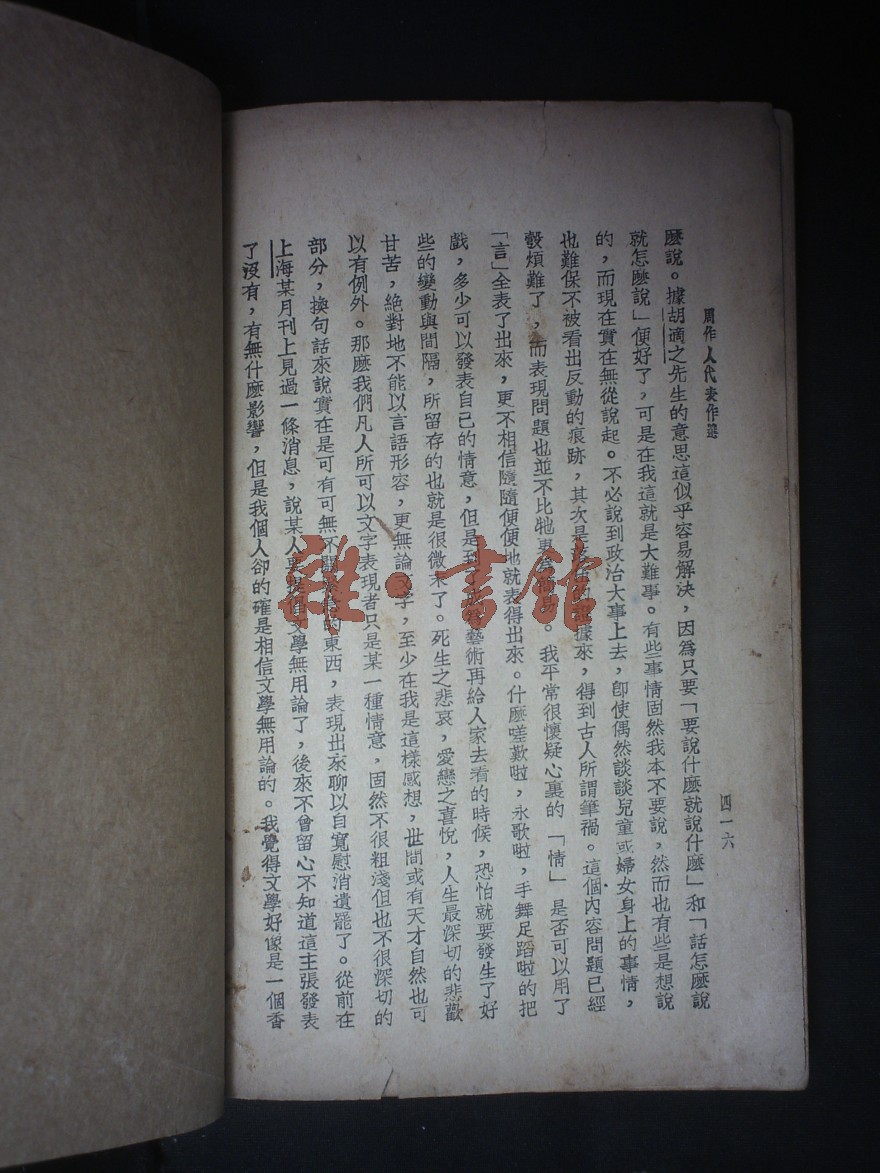 周作人代表作選
四一六
麽說。據胡適之先生的意思這似乎容易解決，因爲只要「要說什麽就說什麽」和「話怎麽說
就怎麽說」便好了，可是在我這就是大難事。有些事情固然我本不要說，然而也有些是想說
的，而現在實在無從說起。不必說到政治大事上去，卽使偶然談談兒童或婦女身上的事情，
也難保不被看出反動的痕跡，其次是的證據來，得到古人所謂筆禍。這個內容問題已經
彀煩難了，而表現問題也並不比牠更。我平常很懷疑心裏的「情」是否可以用了
「言」全表了出來，更不相信隨隨便便地就表得出來。什麽嗟歎啦，永歌啦，手舞足蹈啦的把
戲，多少可以發表自己的情意，但是到了藝術再給人家去看的時候，恐怕就要發生了好
些的變動與間隔，所留存的也就是很微末了。死生之悲哀，愛戀之喜悅，人生最深切的悲歡
甘苦，絕對地不能以言語形容，更無論文字，至少在我是這樣感想，世間或有天才自然也可
以有例外。那麽我們凡人所可以文字表現者只是某一種情意，固然不很粗淺但也不很深切的
部分，換句話來說實在是可有可無不的東西，表現出來聊以自寬慰消遣罷了。從前在
上海某月刊上見過一條消息，說某人要提倡文學無用論了，後來不曾留心不知道這主張發表
了沒有，有無什麽影響，但是我個人卻的確是相信文學無用論的。我覺得文學好像是一個香
雜·書館